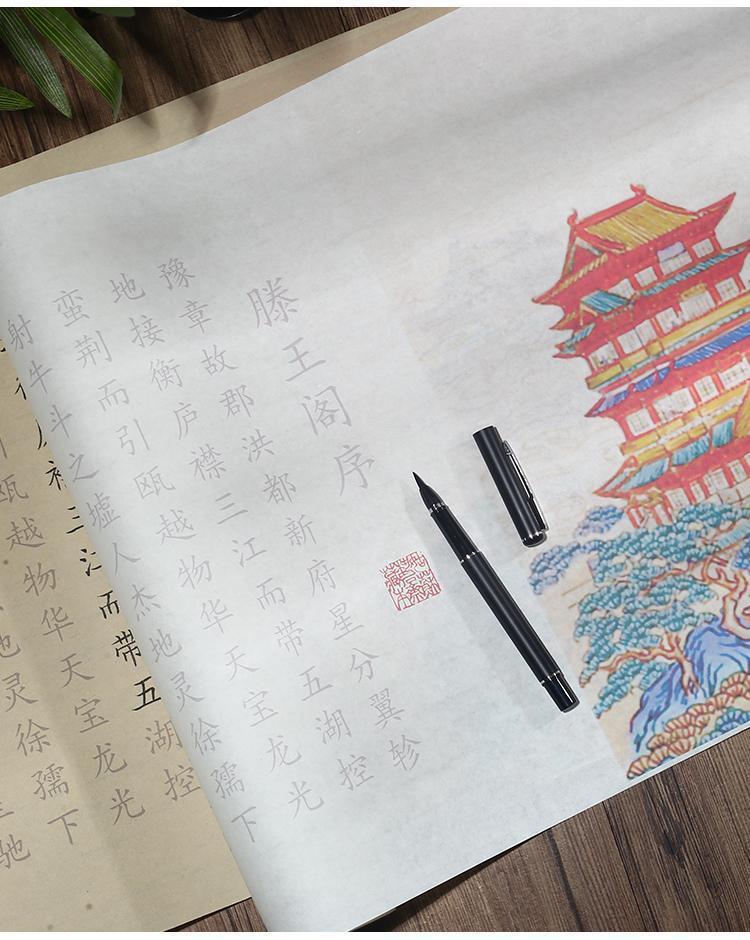 滕王阁序
豫章故郡洪都新府星分翼轸
地接衡庐襟三江而带五湖控
蛮荆而引瓯越物华天宝龙光
射牛斗之墟人杰地灵徐孺下
三江而带五湖控
瓯越物华天宝龙光
地灵徐孺下
驰